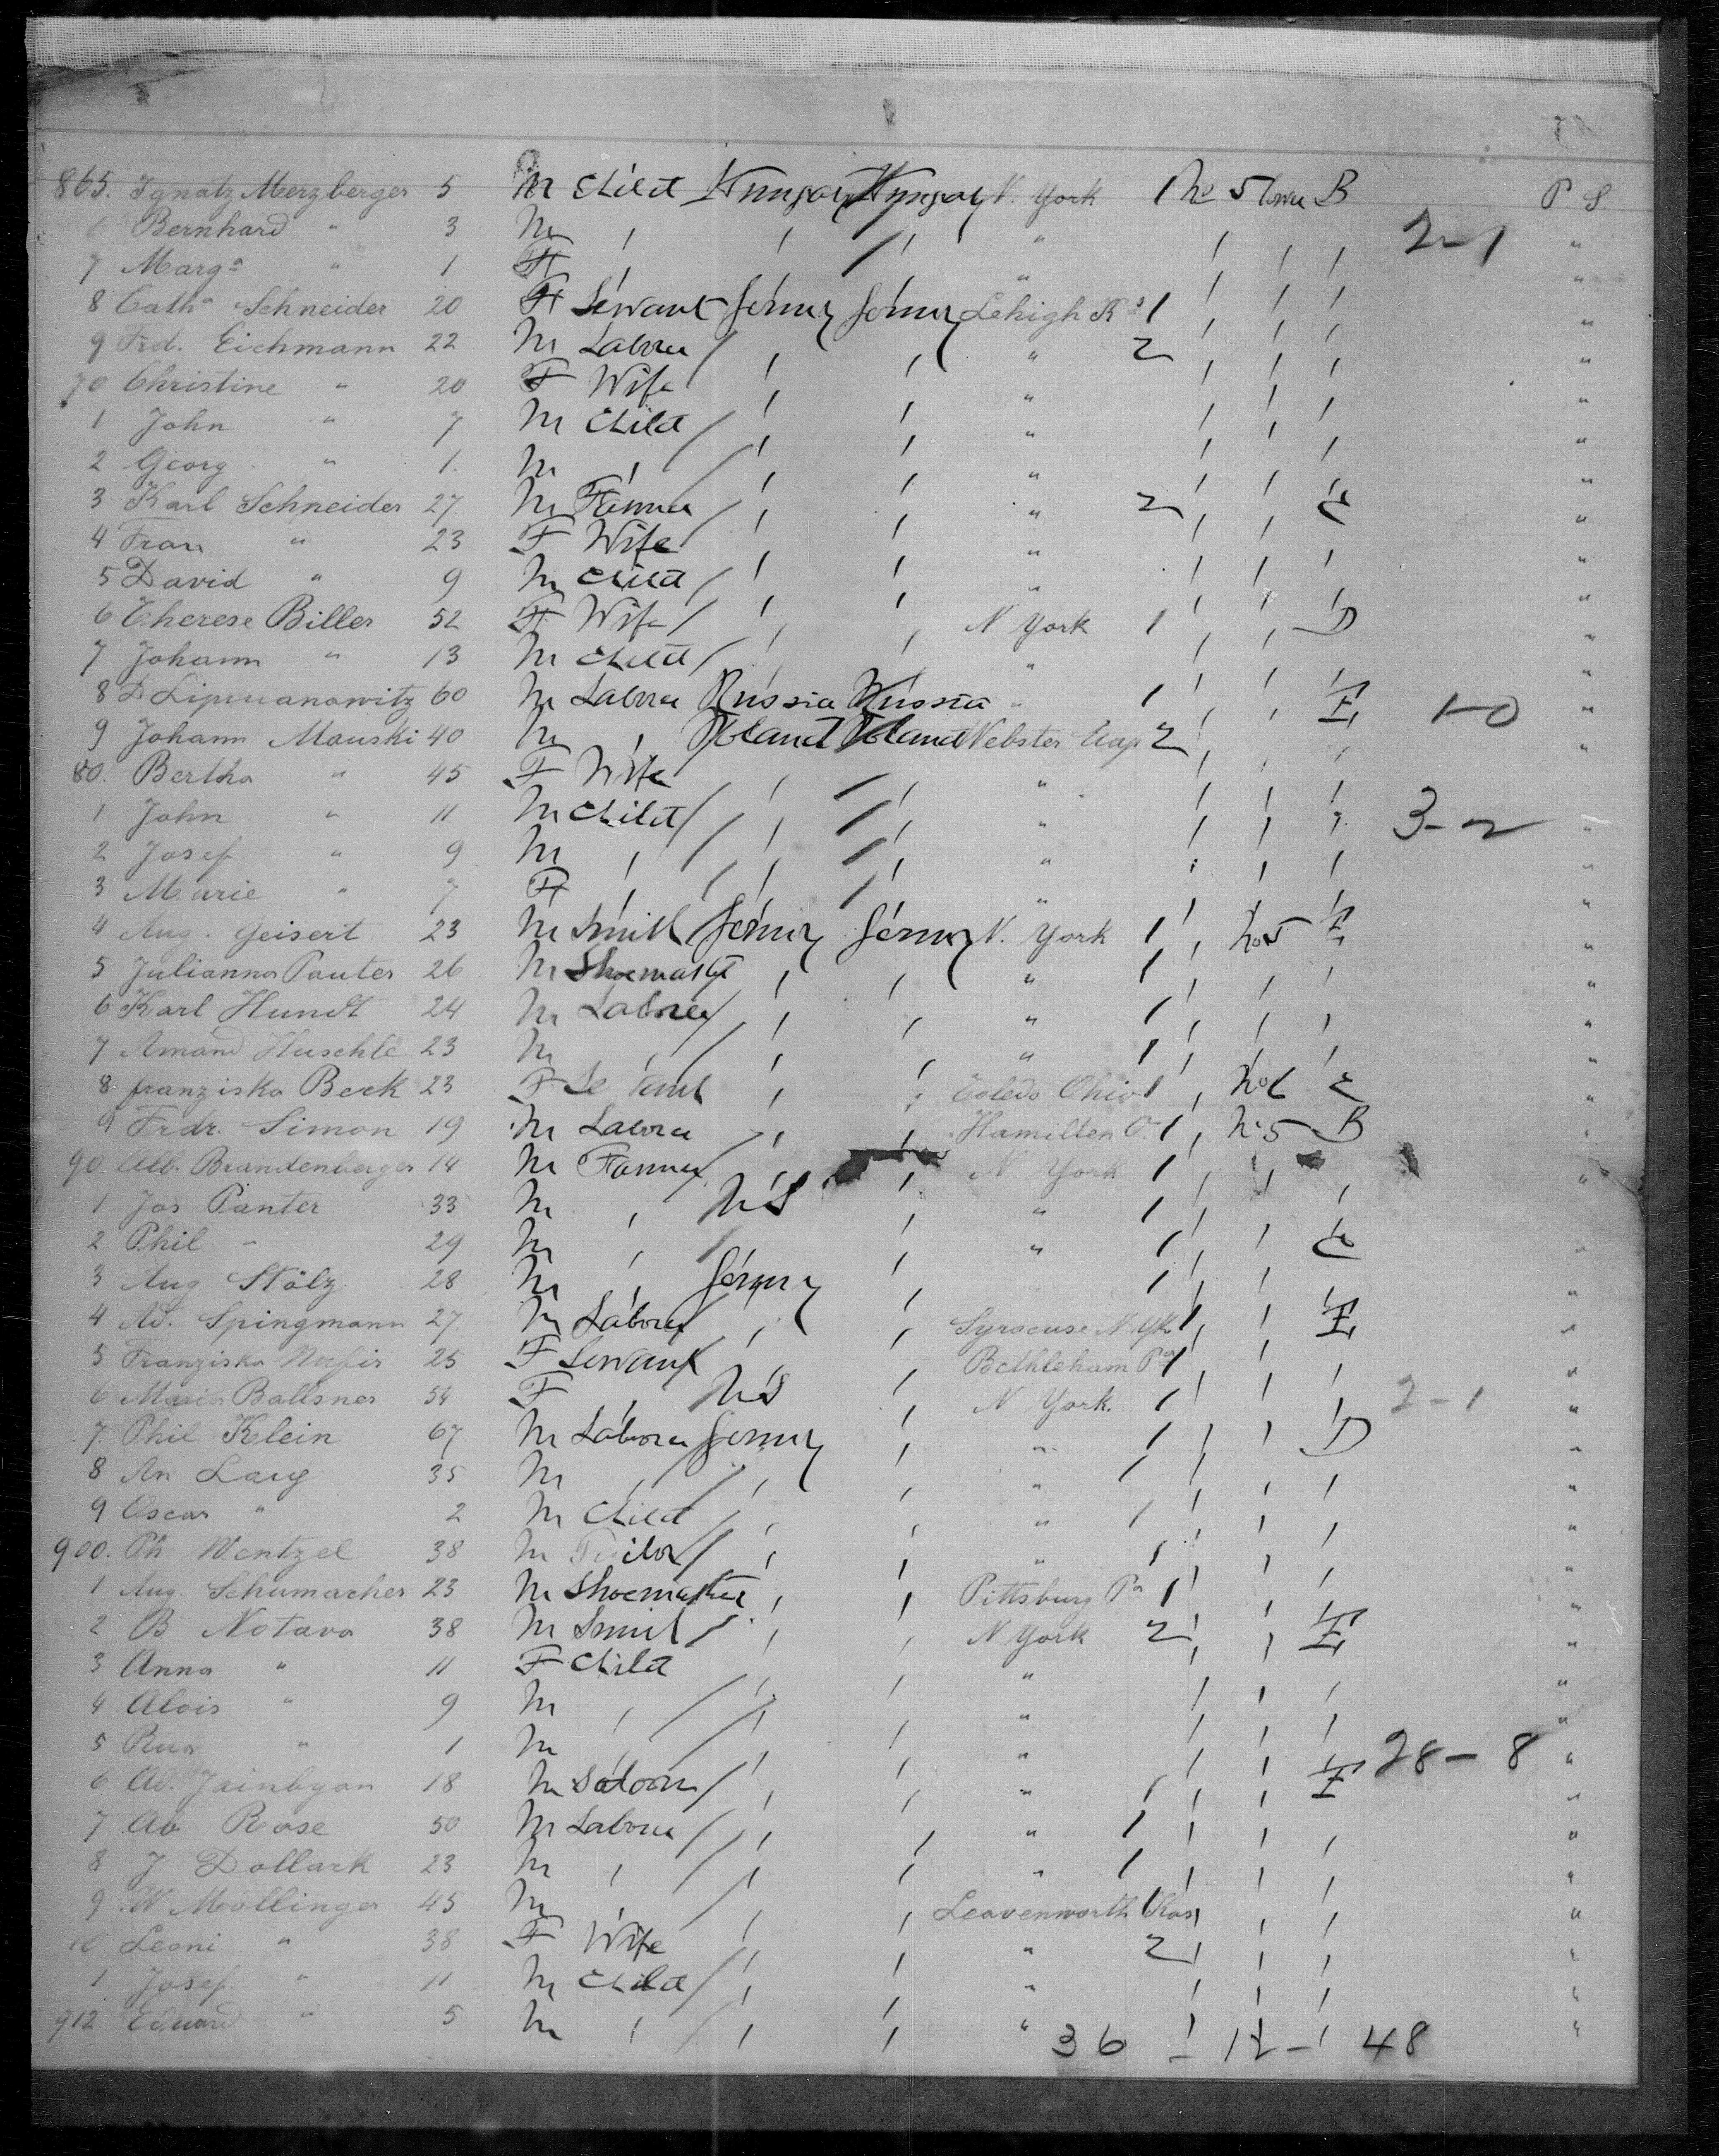 865. Ignatz Merzberger 5 M Child Hungary Hungary N. York 1 No 5 Town B P S.
6 Bernhard " 3 M " " " " 2-1 "
7 Marga " 1 F " " " " "
8 Cath Schneider 20 F Servant Germy Germy Lehigh Ks 1 "
9 Frd. Eichmann 22 M Laborer " " " 2 "
70 Christine " 20 F Wife " " " "
1 John " 7 M Child " " " "
2 Georg " 1. M " " " " "
3 Karl Schneider 27. M Farmer " " " 2 C "
4 Frau " 23 F Wife " " " "
5 David " 9 M Child " " " "
6 Therese Biller 52 F Wife " " N York 1 D "
7 Johann " 13 M Child " " " "
8 60 M Laborer Russia Russia " 1 E 1-0 "
9 Johann Mauski 40 M " Poland Poland Webster 2 "
80. Bertha " 45 F Wife " " "
1 John " 11 M Child " " " 3-2 "
2 Josef " 9 M " " " " "
3 Marie " 7 F " " " " "
4 Aug. Geisert 23 M Smith Germy Germy N. York 1 No 5 E "
5 Julianna Pauter 26 M Shoemaker " " " 1 "
6 Karl Hundt 24 M Laborer " " " 1 "
7 Amand Huschle 23 M " " " " 1 "
8 franziska Beck 23 F " " Toledo Ohio 1 No 6 C "
9 Frdr. Simon 19 M Laborer " " Hamilton O. 1 No 5 B "
90. Alb. Brandenberger 14 M Farmer " " N York 1 "
1 Jos Panter 33 M " US " " 1
2 Phil " 29 M " " " " 1 C "
3 Aug Stölz 28 M " Germy " 1 "
4 Ad. Spingmann 27. M Laborer " " Syracuse N.Yk 1 E "
5 Franziska 25 F Servant " " Bethleham Pa 1 "
6 Maria Ballsner 54 F " US " N York. 1 2-1 "
7. Phil Klein 67 M Laborer Germy " " 1 D "
8 An Lang 35 M " " " " 1 "
9 Oscar " 2 M Child " " " 1 "
900. Ph Wentzel 38 M Tailor " " " 1 "
1 Aug. Schumacher 23 M Shoemaker " " Pittsburg Pa 1 "
2 B Notava 38 M Smith " " N York 2 E "
3 Anna " 11 F Child "
4 Alois " 9 M " " " " "
5 " 1 M " " " " 28-8 "
6 Ad. 18 M " " " 1 E "
7 Ab Rose 50 M Laborer " " " 1 "
8 J Dollack 23 M " " " " 1 "
9 W Mollinger 45 M " " " Leavenworth Kas "
10 Leoni " 38 F Wife " " 2 "
1 Josef " 11 M Child " " " "
912. Eduard " 5 M " " " " "
36 - 12 - 48